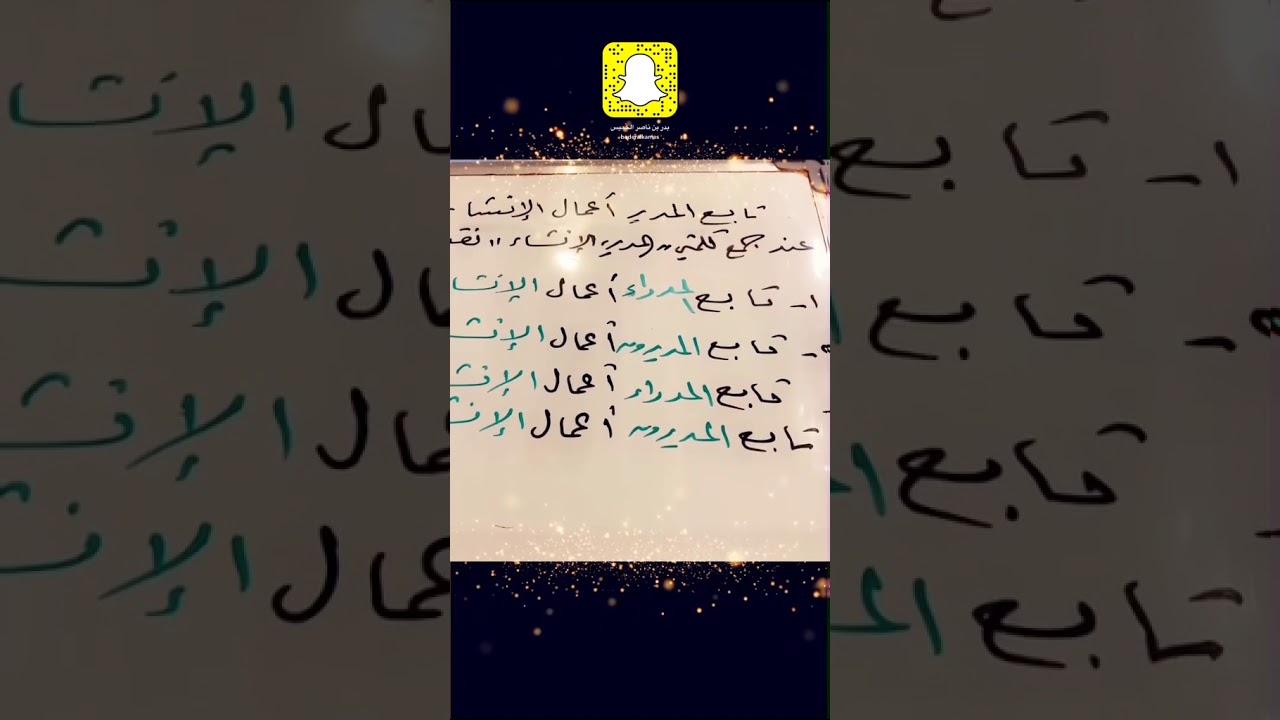 بدر بن ناصر الخميس
تابع المدير أعمال الإنشا
عند جمع كلمتي ,, المدير، الإنشاء ,, نقـ
١- تابع المدراء أعمال الإنشا
- تابع المديرون أعمال الإنشـ
تابع المدراء أعمال الإنشـ
تابع المديرون أعمال الإنشـ